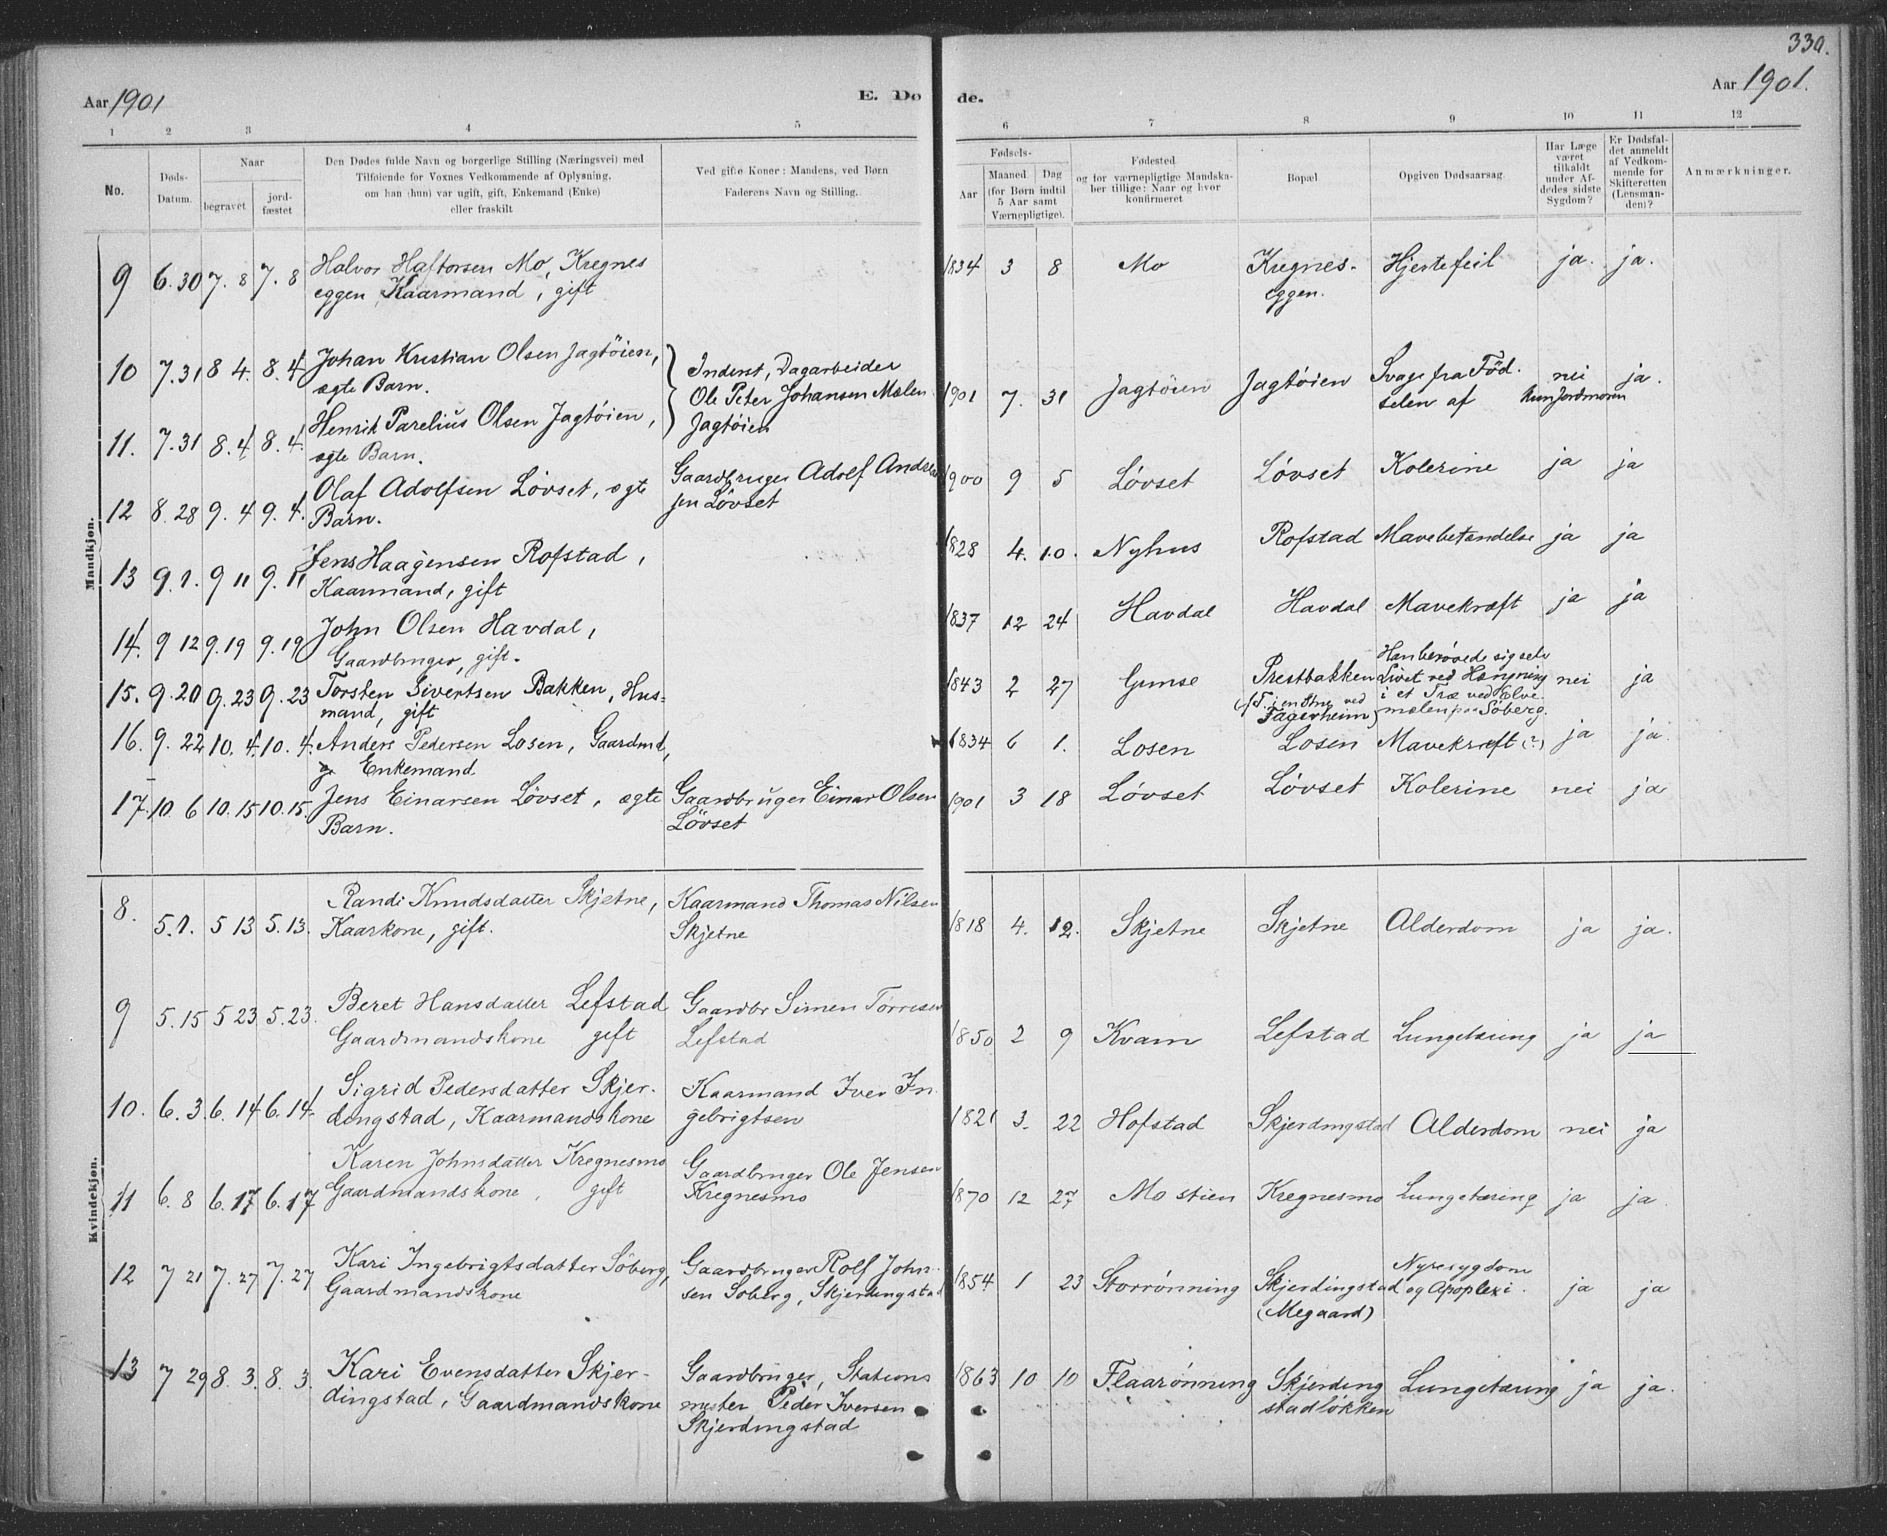 330.
Aar 1901
E. Dø de.
Aar 1901.
1 2 3 4 5 6 7 8 9 10 11 12
No.
Døds-
Datum.
Naar
begravet.
jord-
fæstet
Den Dødes fulde Navn og borgerlige Stilling (Næringsvei) med
Tilføiende for Voxnes Vedkommende af Oplysning.
om han (hun) var ugift, gift, Enkemand (Enke)
eller fraskilt
Ved gifte Koner: Mandens, ved Børn
Faderens Navn og Stilling.
Fødsels-
Aar
Maaned
Dag
(for Børn indtil
5 Aar samt
Værnepligtige).
Fødested
og for værnepligtige Mandska-
ber tillige: Naar og hvor
konfirmeret
Bopæl
Opgiven Dødsaarsag.
Har Læge
været
tilkaldt
under Af-
dødes sidste
Sygdom?
Er Dødsfal-
det anmeldt
af Vedkom-
mende for
Skifteretten
(Lensman-
den)?
Anmærkninger.
Mandkjøn.
9 6.30 7.8 7.8 Halvor Haftorsen Mo, Kregnes 1834 3 8 Mo Kregnes- Hjertefeil ja. ja.
eggen, Kaarmand, gift eggen.
10 7.31 8 4. 8.4. Johan Kristian Olsen Jagtöien,
ægte Barn.
Inderst, Dagarbeider
Ole Peter Johansen Mælen
Jagtöien
1901 7. 31 Jagtöien Jagtöien Svage fra Föd- nei ja.
selen af Kun Jordmoren
11. 7.31 8.4 8.4. Henrik Parelius Olsen Jagtöien,
ægte Barn.
12 8.28 9.4 9.4. Olaf Adolfsen Lövset, ægte Gaardbruger Adolf Andrea 1900 9 5 Lövset Lövset Kolerine ja ja
Barn. sen Lövset
13 9.1. 9 11 9.11 Jens Haagensen Rofstad, 1828 4. 10. Nyhus Rofstad Mavebetændelse ja ja
Kaarmand, gift
14. 9 12 9.19 9.19 John Olsen Havdal, 1837 12 24 Havdal Havdal Mavekræft ja ja
Gaardbruger, gift.
15. 9.20 9.23 9.23 Torsten Sivertsen Bakken, Hus- 1843 2 27 Gimse Prestbakken nei ja
mand, gift
(f.T. i en Stue ved
Fagerheim)
Han berövede sig selv
Livet ved Hængning
i et Træ ved Elve-
mælen paa Söberg.
16. 9.22 10.4 10.4. Anders Pedersen Losen, Gaardmd, 1834 6 1. Losen Losen Mavekræft (?) ja ja.
og Enkemand
17. 10 6 10.15 10.15. Jens Einarsen Lövset, ægte Gaardbruger Einar Olsen 1901 3 18 Lövset Lövset Kolerine nei ja
Barn. Lövset
Kvindekjøn.
8. 5.1. 5 13 5.13. Randi Knudsdatter Skjetne, Kaarmand Thomas Nilsen 1818 4. 12. Skjetne Skjetne Alderdom ja ja.
Kaarkone, gift. Skjetne
9 5.15 5 23 5.23. Beret Hansdatter Lefstad Gaardbr Simen Torrisen 1850 2 9 Kvam Lefstad Lungetæring ja ja
Gaardmandskone gift Lefstad
10. 6.3. 6.14 6.14. Sigrid Pedersdatter Skjer- Kaarmand Iver In- 1821 3. 22 Hofstad Skjerdingstad Alderdom nei ja
dingstad, Kaarmandskone gebrigtsen
11 6.8 6.17 6.17 Karen Johnsdatter Kregnesmo Gaardbruger Ole Jensen 1870 12 27 Mostien Kregnesmo Lungetæring ja ja.
Gaardmandskone, gift Kregnesmo
12 7 21 7.27 7.27 Kari Ingebrigtsdatter Söberg, Gaardbruger Rolf John- 1854 1 23 Storrönning Skjerdingstad Nyresygdom ja ja
Gaardmandskone sen Söberg, Skjerdingstad (Megaard) og Apoplexi.
13 7 29 8.3. 8.3. Kari Evensdatter Skjer- Gaardbruger, Stations 1863 10 10 Flaarönning Skjerding Lungetæring ja ja.
dingstad, Gaardmandskone mester Peder Iversen stadlökken
Skjerdingstad